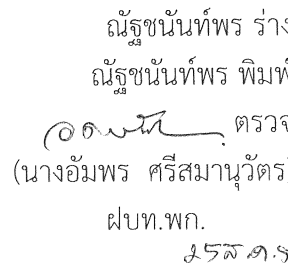 ณัฐชนันท์พร ร่าง
ณัฐชนันท์พร พิมพ์
ตรวจ
(นางอัมพร ศรีสมานุวัตร)
ฝบท.พก.
๒๕ ส.ค.